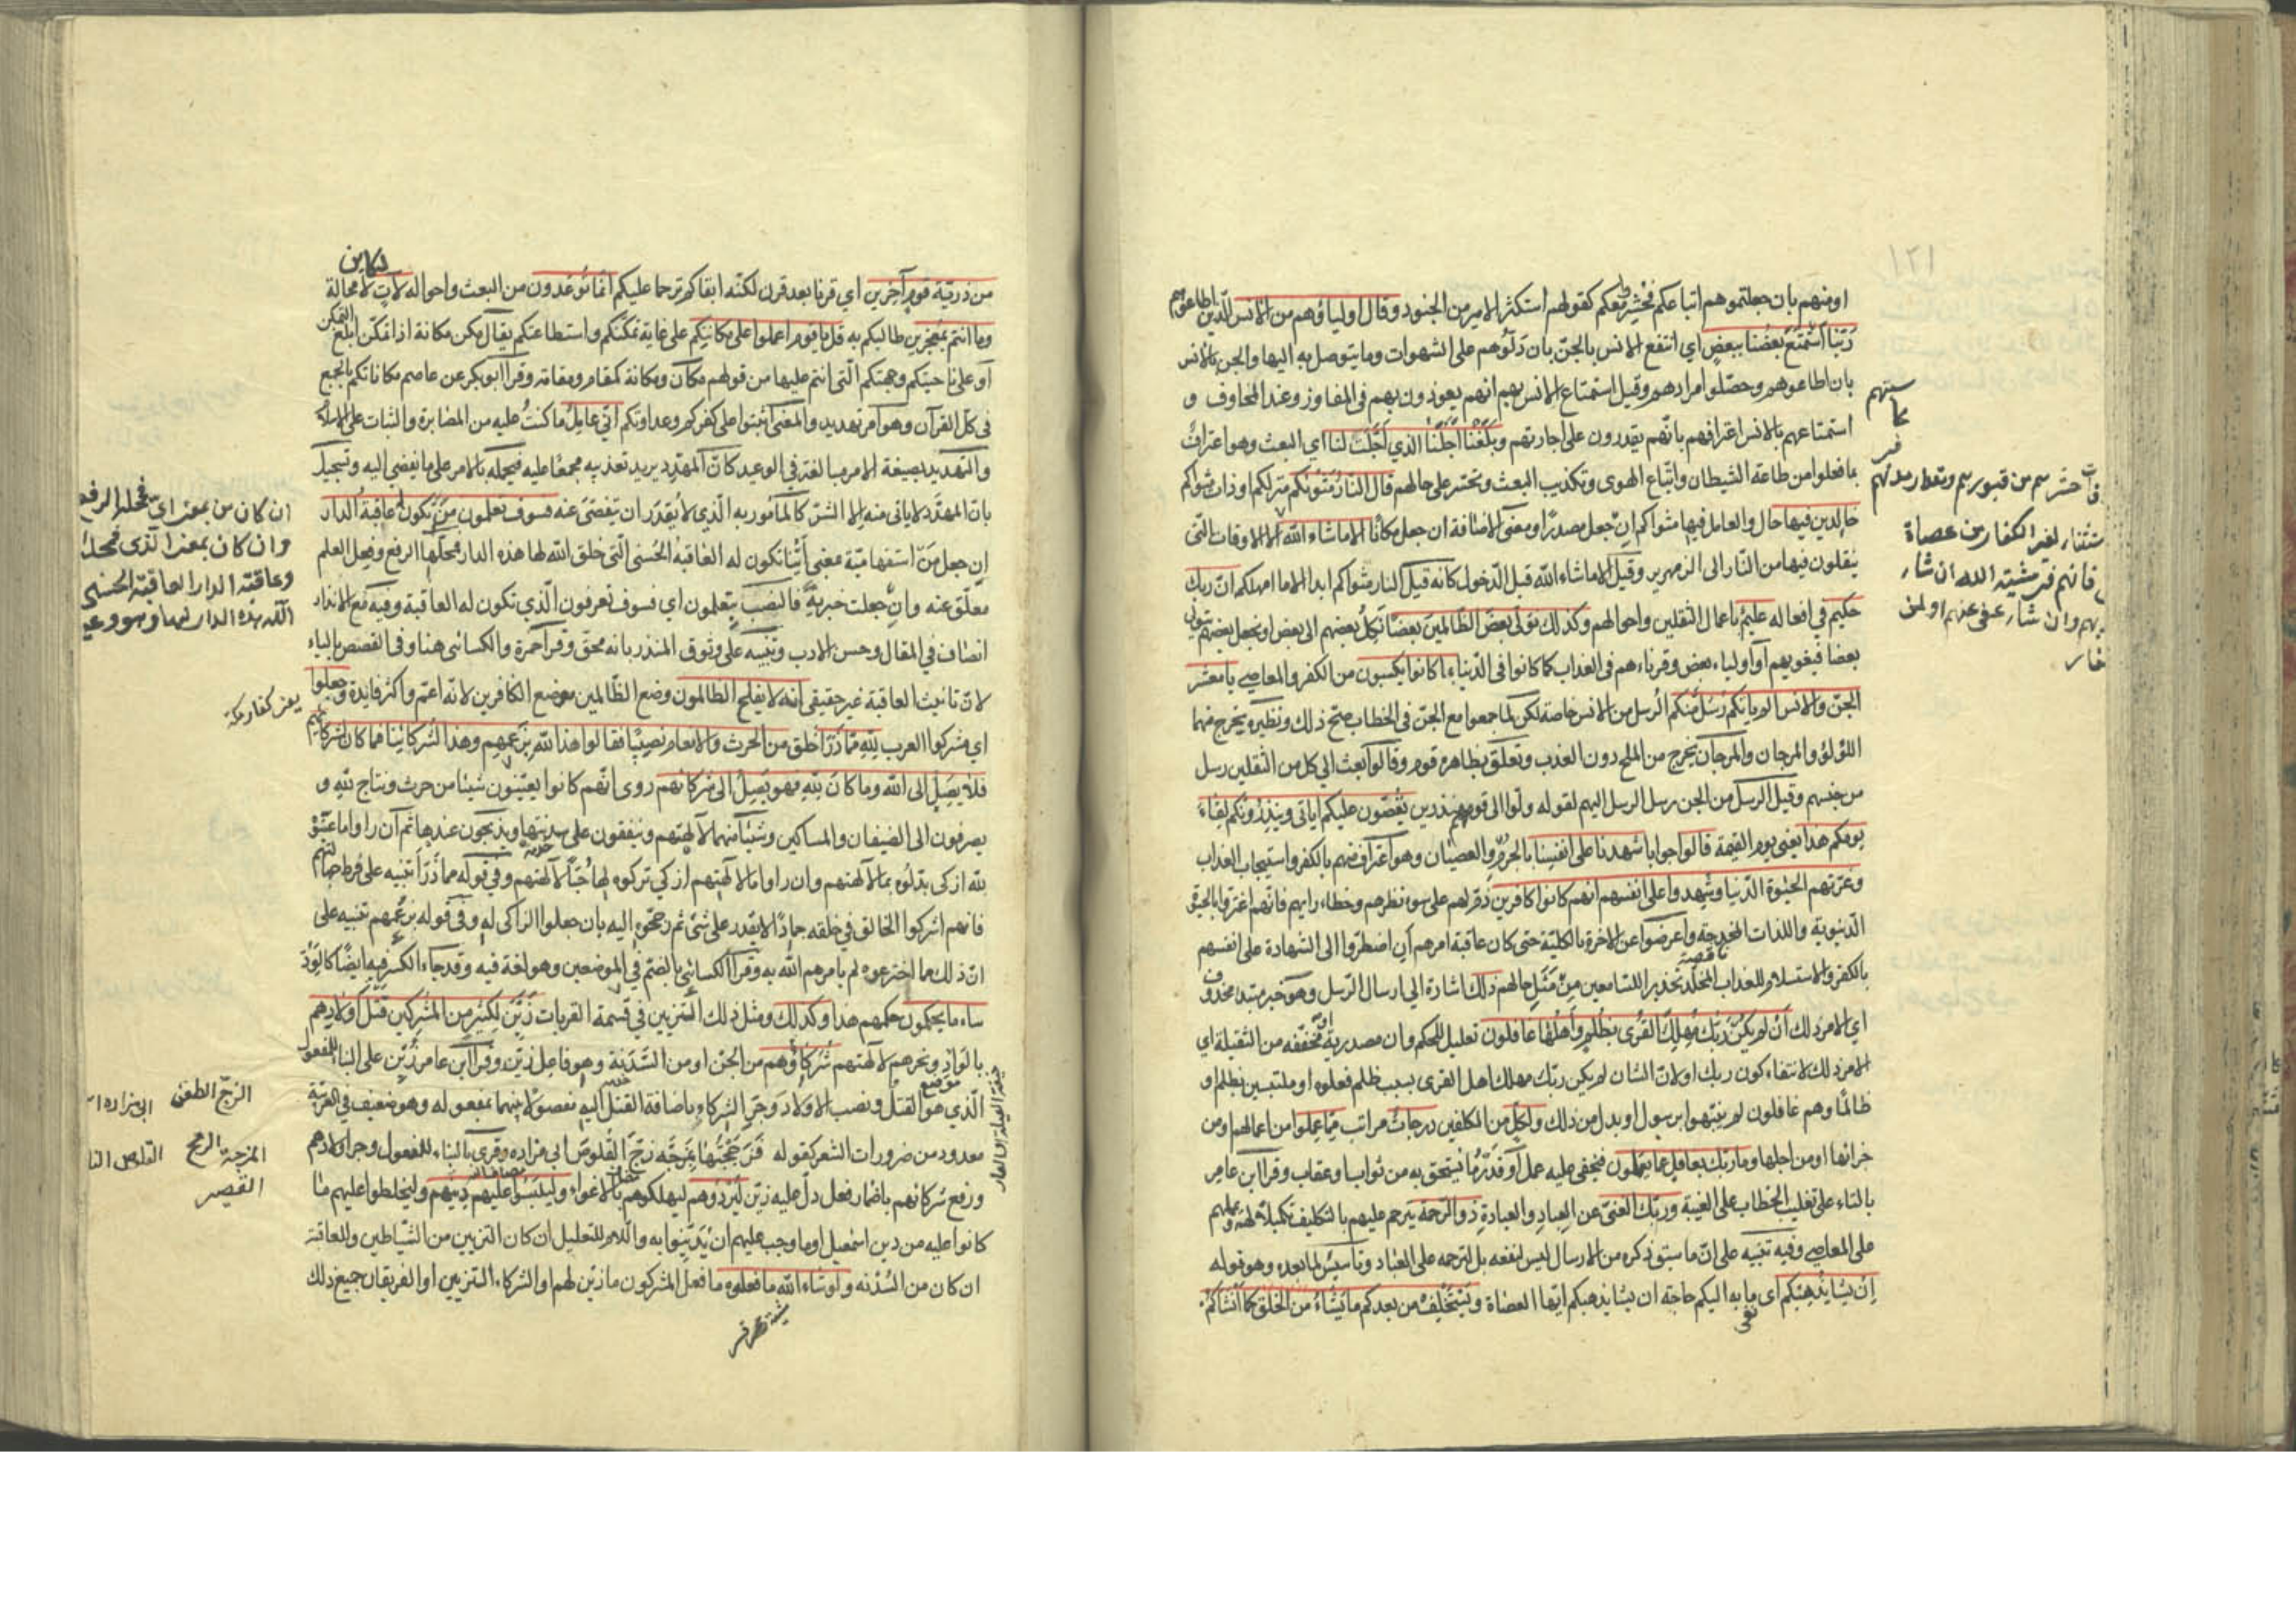 ١٢١
او منهم بان جعلتموهم اتباعكم فحشروا معكم كقولهم استكثر الامير من الجنود وقال اولياؤهم من الانس الذين اطاعوهم
ربنا استمتع بعضنا ببعض اي انتفع الانس بالجن بان دلوهم على الشهوات وما يتوصل به اليها والجن بالانس
بان اطاعوهم وحصلوا مرادهم وقيل استمتاع الانس بهم انهم يعوذون بهم في المفاوز وعند المخاوف و
استمتاعهم بالانس اعترافهم بانهم يقدرون على اجارتهم وبلغنا اجلنا الذي اجلت لنا اي البعث وهو اعتراف
بما فعلوا من طاعة الشيطان واتباع الهوى وتكذيب البعث وتحسر على حالهم قال النار مثويكم منزلكم او ذات مثواكم
خالدين فيها حال والعامل فيها مثواكم ان جعل مصدرا ومعنى الاضافة ان جعل مكانا الا ما شاء الله الا الاوقات التي
ينقلون فيها من النار الى الزمهرير وقيل الا ما شاء الله قبل الدخول كانه قيل النار مثواكم ابدا الا ما امهلكم ان ربك
حكيم في افعاله عليم باعمال الثقلين واحوالهم وكذلك نولى بعض الظالمين بعضا نكل بعضهم الى بعض او نجعل بعضهم يتولى
بعضا فيغويهم او اولياء بعض وقرناءهم في العذاب كما كانوا في الدنيا بما كانوا يكسبون من الكفر والمعاصي يا معشر
الجن والانس الم ياتكم رسل منكم الرسل من الانس خاصة لكن لما جمعوا مع الجن في الخطاب صح ذلك ونظيره يخرج منهما
اللؤلؤ والمرجان والمرجان يخرج من الملح دون العذب وتعلق بظاهره قوم وقالوا بعث الى كل من الثقلين رسل
من جنسهم وقيل الرسل من الجن رسل الرسل اليهم لقوله ولوا الى قومهم منذرين يقصون عليكم اياتي وينذرونكم لقاء
يومكم هذا يعني يوم القيمة قالوا جوابا شهدنا على انفسنا بالجرم والعصيان وهو اعتراف منهم بالكفر واستيجاب العذاب
وغرتهم الحيوة الدنيا وشهدوا على انفسهم انهم كانوا كافرين ذم لهم على سوء نظرهم وخطاء رايهم فانهم اغتروا بالحيوة
الدنيوية واللذات المخدجة واعرضوا عن الاخرة بالكلية حتى كان عاقبة امرهم ان اضطروا الى الشهادة على انفسهم
بالكفر والاستسلام للعذاب المخلد تحذيرا للسامعين من مثل حالهم ذلك اشارة الى ارسال الرسل وهو خبر مبتدا محذوف
اي الامر ذلك ان لم يكن ربك مهلك القرى بظلم واهلها غافلون تعليل للحكم وان مصدرية او مخففه من الثقيلة اي
الامر ذلك لانتفاء كون ربك اولان الشان لم يكن ربك مهلك اهل القرى بسبب ظلم فعلوه او ملتبسين بظلم او
ظالما وهم غافلون لم ينبهوا برسول او بدل من ذلك ولكل من المكلفين درجات مراتب مما عملوا من اعمالهم او من
جزائها او من اجلها وما ربك بغافل عما يعملون فيخفى عليه عمل او قدر ما يستحق به من ثواب او عقاب وقرا ابن عامر
بالتاء على تغليب الخطاب على الغيبة وربك الغني عن العباد والعبادة ذو الرحمة يترحم عليهم بالتكليف تكميلا لهم ويمهلهم
على المعاصي وفيه تنبيه على ان ما سبق ذكره من الارسال ليس لنفعه بل لترحمه على العباد وتاسيس لما بعده وهو قوله
ان يشا يذهبكم اي ما به اليكم حاجة ان يشا يذهبكم ايها العصاة ويستخلف من بعدكم ما يشاء من الخلق كما انشاكم
من ذرية قوم آخرين اي قرنا بعد قرن لكنه ابقاكم ترحما عليكم انما توعدون من البعث واحواله لات لكاين لا محالة
وما انتم بمعجزين طالبكم به قل يا قوم اعملوا على مكانتكم على غاية تمكنكم واستطاعتكم يقال مكن مكانة اذا تمكن ابلغ التمكن
او على ناحيتكم وجهتكم التي انتم عليها من قولهم مكان ومكانة كمقام ومقامة وقرا ابو بكر عن عاصم مكاناتكم بالجمع
في كل القرآن وهو امر تهديد والمعنى اثبتوا على كفركم وعداوتكم اني عامل ما كنت عليه من المصابرة والثبات على الاسلام
والتهديد بصيغة الامر مبالغة في الوعيد كان المهدد يريد تعذيبه مجمعا عليه فيحمله بالامر على ما يفضي اليه وتسجيل
بان المهدد لا ياتى منه الا الشر كالمامور به الذي لا يقدر ان يتفصى عنه فسوف تعلمون من تكون له عاقبة الدار
ان جعل من استفهامية بمعنى اينا تكون له العاقبة الحسنى التي خلق الله لها هذه الدار فمحلها الرفع وفعل العلم
معلق عنه وان جعلت خبرية فالنصب بتعلمون اي فسوف تعرفون الذي تكون له العاقبة وفيه مع الانذار
انصاف في المقال وحسن الادب وتنبيه على وثوق المنذر بانه محق وقرا حمزة والكسائي هنا وفي القصص بالياء
لان تانيث العاقبة غير حقيقي انه لا يفلح الظالمون وضع الظالمين موضع الكافرين لانه اعم واكثر فايدة وجعلوا
اي مشركوا العرب لله مما ذرا خلق من الحرث والانعام نصيبا فقالوا هذا لله بزعمهم وهذا لشركائنا فما كان لشركائهم
فلا يصل الى الله وما كان لله فهو يصل الى شركائهم روى انهم كانوا يعينون شيئا من حرث ونتاج لله و
يصرفون الى الضيفان والمساكين وشيئا منهما لآلهتهم وينفقون على سدنتها ويذبحون عندها ثم ان راوا ما عينوا
لله ازكى بدلوه بما لآلهتهم وان راوا ما لآلهتهم ازكى تركوه لها حبا لآلهتهم وفي قوله مما ذرا تنبيه على فرط جهالتهم
فانهم اشركوا الخالق في خلقه جمادا لا يقدر على شئ ثم رجحوه اليه بان جعلوا الزاكي له وفي قوله بزعمهم تنبيه على
ان ذلك مما اخترعوه لم يامرهم الله به وقرا الكسائي بالضم في الموضعين وهو لغة فيه وقد جاء الكسر فيه ايضا كالود
ساء ما يحكمون حكمهم هذا وكذلك ومثل ذلك التزيين في قسمة القربات زين لكثير من المشركين قتل اولادهم
بالواد ونحرهم لآلهتهم شركاؤهم من الجن او من السدنة وهو فاعل زين وقرا ابن عامر زين على البناء للمفعول
الذي هو القتل ونصب الاولاد وجر الشركاء باضافة القتل اليه مفصولا بينهما بمفعوله وهو ضعيف في العربية
معدود من ضرورات الشعر كقوله فزججتها بمزجة زج القلوص ابي مزاده وقرى بالبناء للمفعول وجر اولادهم
ورفع شركائهم باضمار فعل دل عليه زين ليردوهم ليهلكوهم بالاغواء وليلبسوا عليهم دينهم وليخلطوا عليهم ما
كانوا عليه من دين اسمعيل او ما وجب عليهم ان يتدينوا به واللام للتعليل ان كان التزيين من الشياطين وللعاقبة
ان كان من السدنه ولو شاء الله ما فعلوه ما فعل المشركون ما زين لهم او الشركاء التزيين او الفريقان جميع ذلك
ان كان من بمعنى اي فمحلها الرفع
وان كان بمعنى الذي فمحله
وعاقبة الدار العاقبة الحسنى
الله هذه الدار لها وهو وعيد
يعني كفار مكة
الزج الطعن
المزجة الرمح
القصير